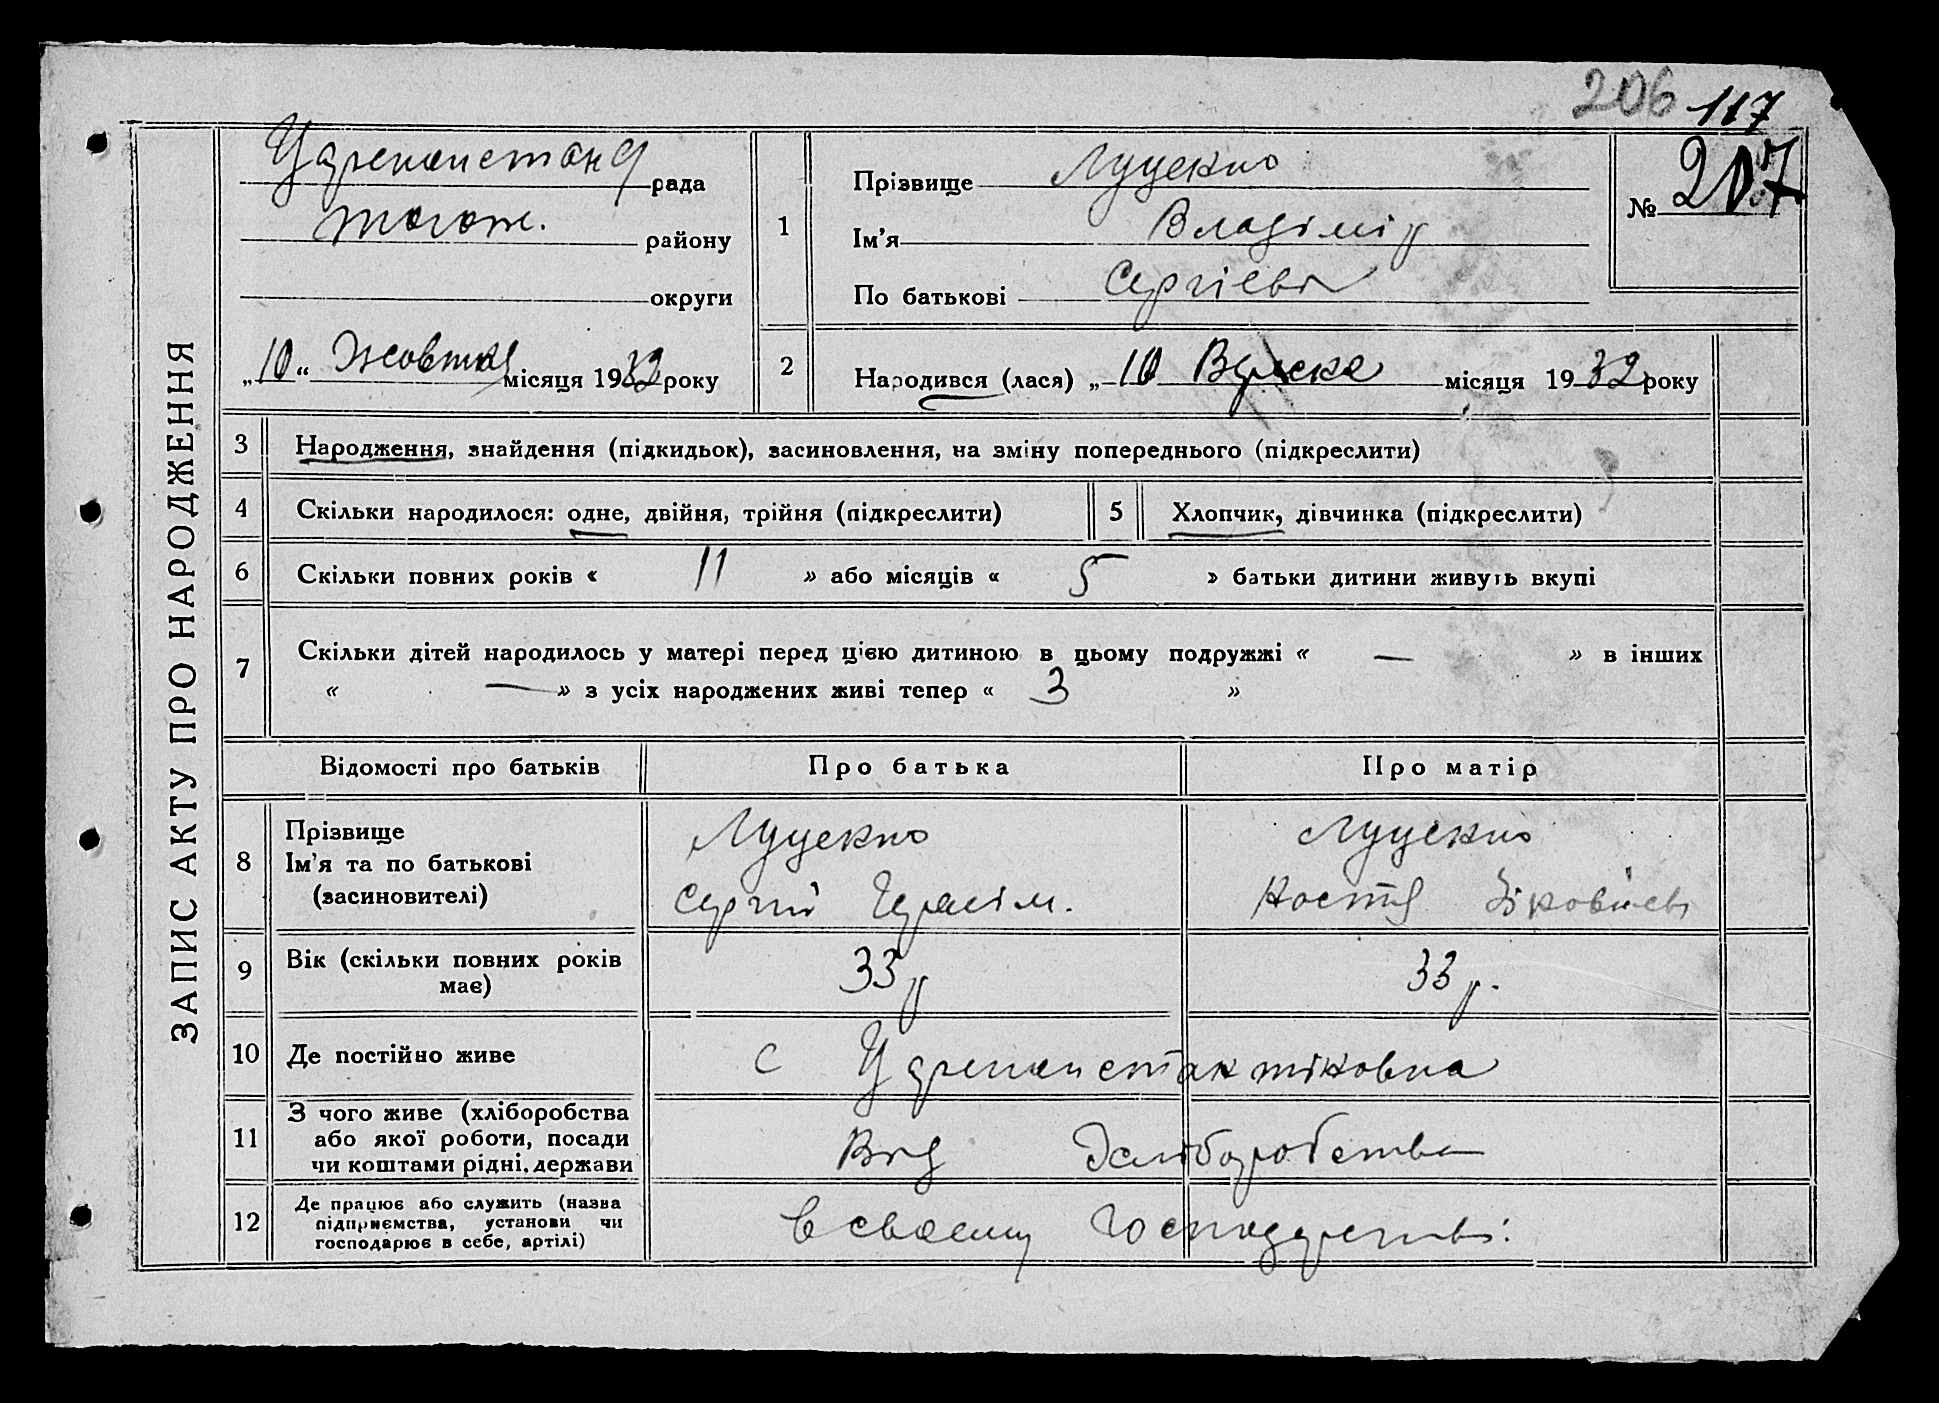 206 117
рада
району
округи
„10“ Жовтня місяця 1932 року
1
Прізвище Луценко
Ім’я Владімір
По батькові Сергієв
№ 207
2
Народився (лася) „10 місяця 1932 року
ЗАПИС АКТУ ПРО НАРОДЖЕННЯ
3 Народження, знайдення (підкидьок), засиновлення, на зміну попереднього (підкреслити)
4 Скільки народилося: одне, двійня, трійня (підкреслити) 5 Хлопчик, дівчинка (підкреслити)
6 Скільки повних років « 11 » або місяців « 5 » батьки дитини живуть вкупі
7 Скільки дітей народилось у матері перед цією дитиною в цьому подружжі « — » в інших
« — » з усіх народжених живі тепер « 3 »
Відомості про батьків Про батька Про матір
8 Прізвище
Ім’я та по батькові
(засиновителі)
Луценко
Сергій Герасім.
Луценко
Настя
9 Вік (скільки повних років
має)
33 р
33 р.
10 Де постійно живе
с
11 З чого живе (хліборобства
або якої роботи, посади
чи коштами рідні, держави
Від Хліборобства
12 Де працює або служить (назва
підприємства, установи чи
господарює в себе, артілі)
В своему Господарстві.